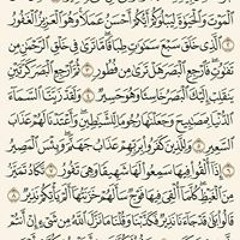 ٱلْمَوْتَ وَٱلْحَيَوٰةَ لِيَبْلُوَكُمْ أَيُّكُمْ أَحْسَنُ عَمَلًا وَهُوَ ٱلْعَزِيزُ ٱلْغَفُورُ
٢ ٱلَّذِى خَلَقَ سَبْعَ سَمَٰوَٰتٍ طِبَاقًا مَّا تَرَىٰ فِى خَلْقِ ٱلرَّحْمَٰنِ مِن
تَفَٰوُتٍ فَٱرْجِعِ ٱلْبَصَرَ هَلْ تَرَىٰ مِن فُطُورٍ ٣ ثُمَّ ٱرْجِعِ ٱلْبَصَرَ كَرَّتَيْنِ
يَنقَلِبْ إِلَيْكَ ٱلْبَصَرُ خَاسِئًا وَهُوَ حَسِيرٌ ٤ وَلَقَدْ زَيَّنَّا ٱلسَّمَآءَ
ٱلدُّنْيَا بِمَصَٰبِيحَ وَجَعَلْنَٰهَا رُجُومًا لِّلشَّيَٰطِينِ وَأَعْتَدْنَا لَهُمْ عَذَابَ ٱلسَّعِيرِ
٥ وَلِلَّذِينَ كَفَرُوا۟ بِرَبِّهِمْ عَذَابُ جَهَنَّمَ وَبِئْسَ ٱلْمَصِيرُ
٦ إِذَآ أُلْقُوا۟ فِيهَا سَمِعُوا۟ لَهَا شَهِيقًا وَهِىَ تَفُورُ ٧ تَكَادُ تَمَيَّزُ
مِنَ ٱلْغَيْظِ كُلَّمَآ أُلْقِىَ فِيهَا فَوْجٌ سَأَلَهُمْ خَزَنَتُهَآ أَلَمْ يَأْتِكُمْ نَذِيرٌ ٨
قَالُوا۟ بَلَىٰ قَدْ جَآءَنَا نَذِيرٌ فَكَذَّبْنَا وَقُلْنَا مَا نَزَّلَ ٱللَّهُ مِن شَىْءٍ إِنْ أَنتُمْ